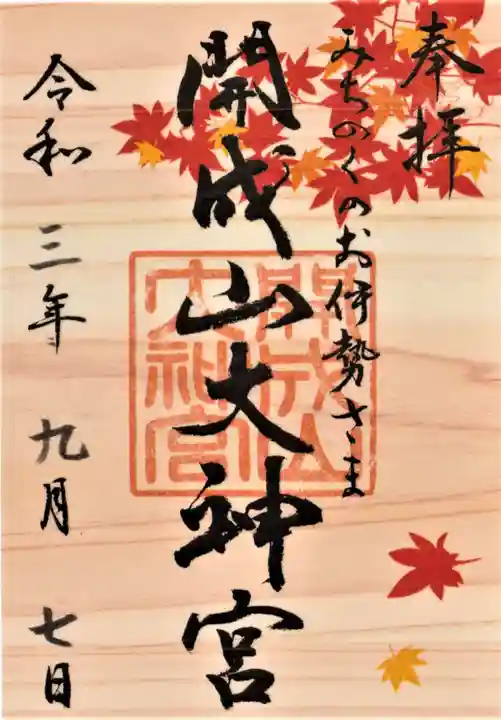 奉拝
みちのくのお伊勢さま
開成山大神宮
開成山
大神宮
令和三年九月七日